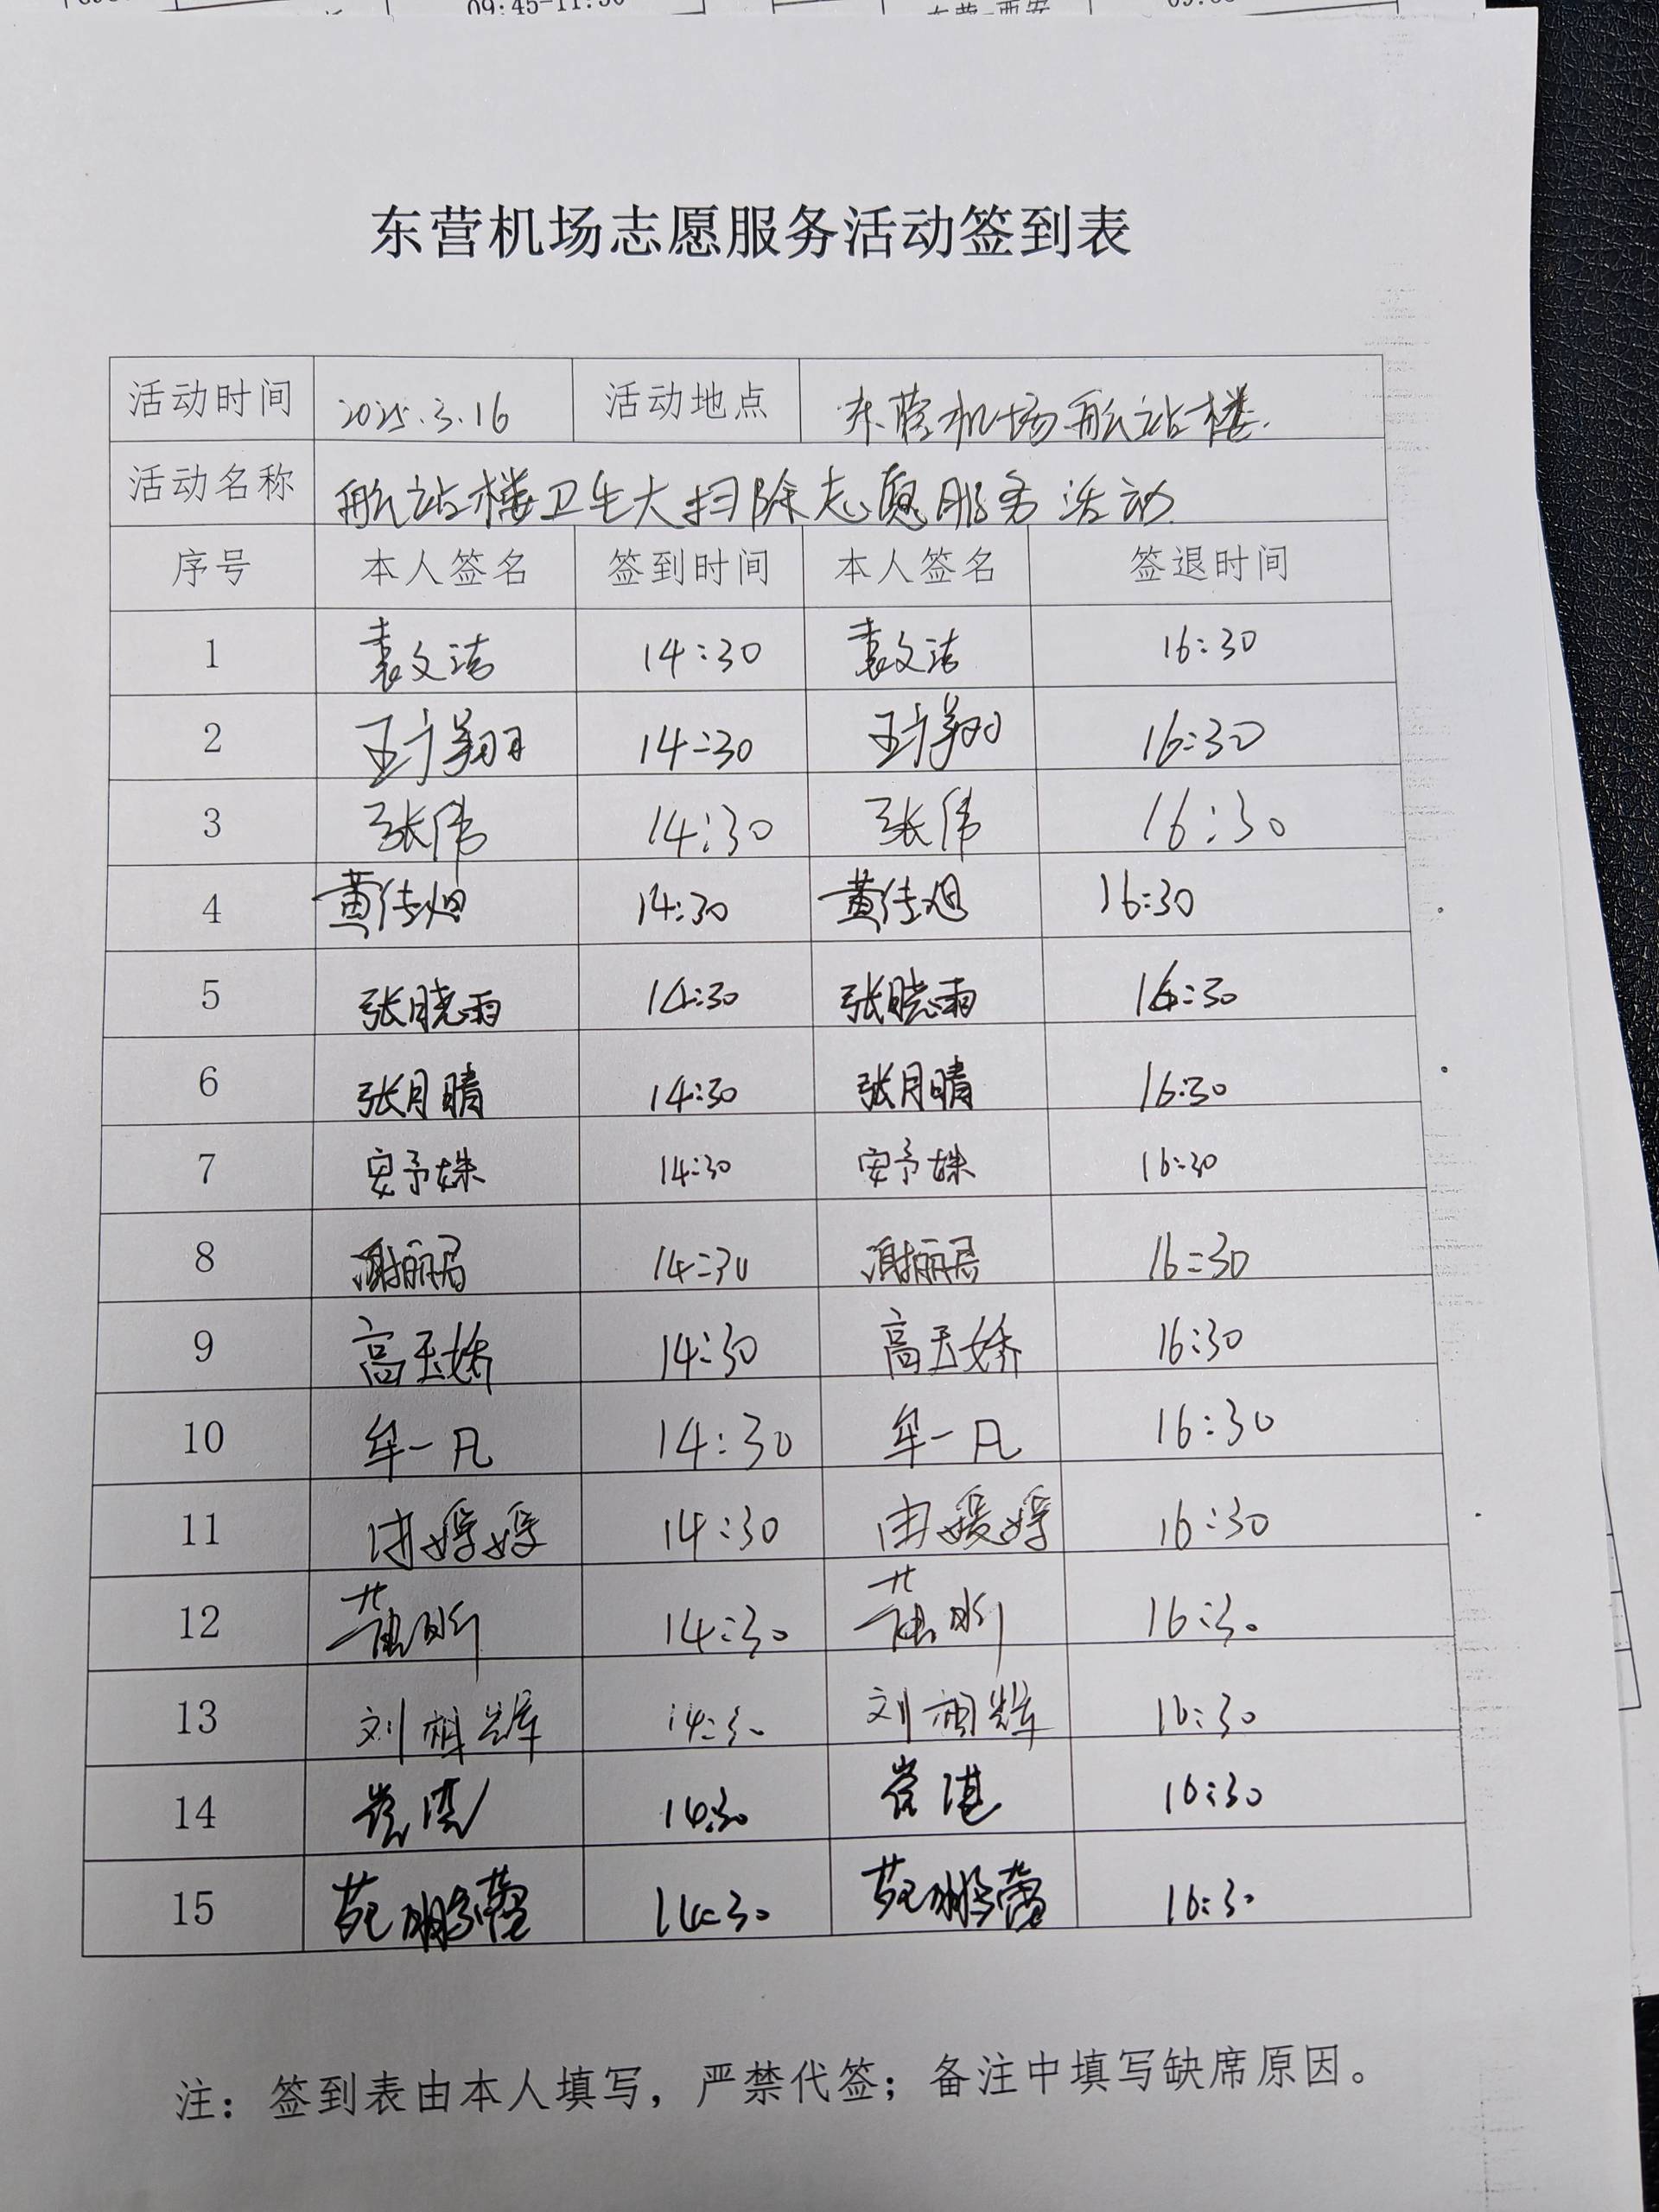 09:45-11:30
东营机场志愿服务活动签到表
活动时间 2025.3.16 活动地点 东营机场航站楼.
活动名称 航站楼卫生大扫除志愿服务活动
序号 本人签名 签到时间 本人签名 签退时间
1 袁文洁 14:30 袁文洁 16:30
2 王广翔 14:30 王广翔 16:30
3 张伟 14:30 张伟 16:30
4 黄佳旭 14:30 黄佳旭 16:30
5 张晓雨 14:30 张晓雨 16:30
6 张月晴 14:30 张月晴 16:30
7 安予姝 14:30 安予姝 16:30
8 谢丽君 14:30 谢丽君 16:30
9 高玉娇 14:30 高玉娇 16:30
10 牟一凡 14:30 牟一凡 16:30
11 14:30 16:30
12 14:30 16:30
13 刘相辉 14:30 刘相辉 16:30
14 14:30 16:30
15 14:30 16:30
注：签到表由本人填写，严禁代签；备注中填写缺席原因。